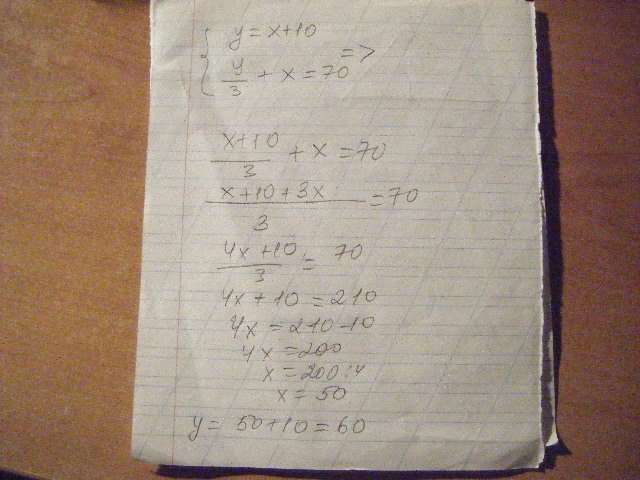 { y = x+10
{ y/3 + x = 70 =>
(x+10)/3 + x = 70
(x+10+3x)/3 = 70
(4x+10)/3 = 70
4x + 10 = 210
4x = 210-10
4x = 200
x = 200:4
x = 50
y = 50+10 = 60